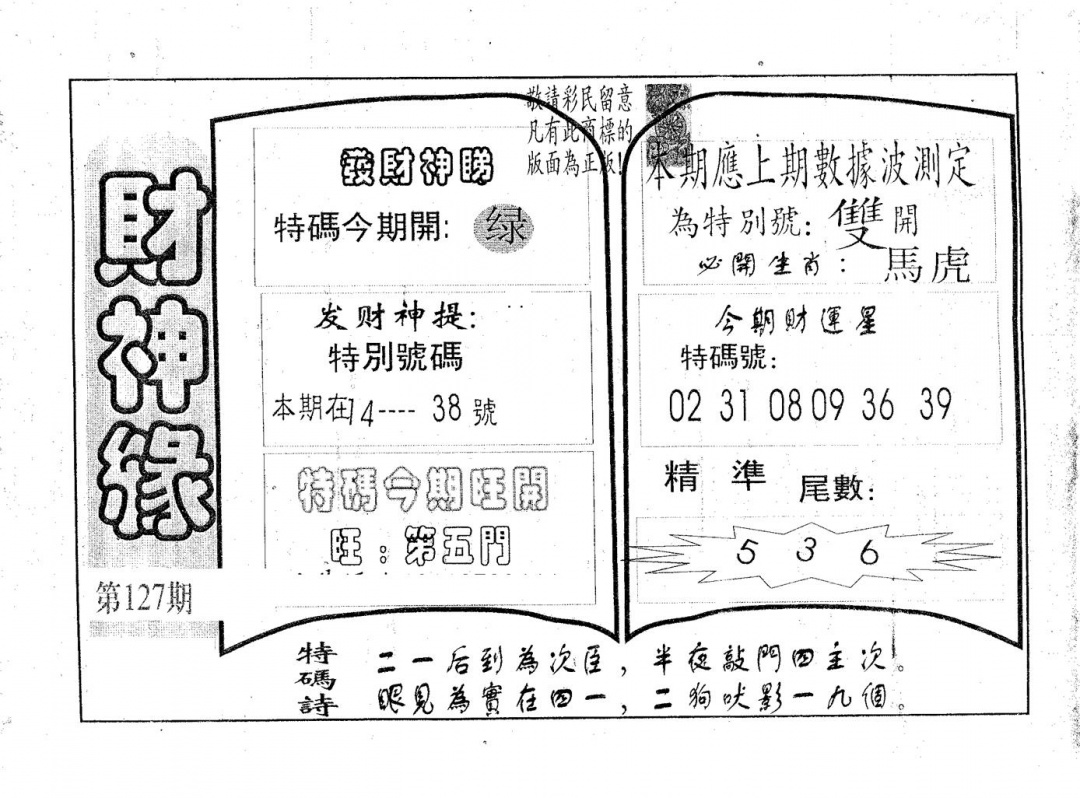 財神緣
第127期
敬請彩民留意
凡有此商標的
版面為正版!
發財神睇
特碼今期開:绿
发财神提:
特別號碼
本期在14----38號
特碼今期旺開
旺:第五門
本期應上期數據波測定
為特別號:雙開
必開生肖:馬虎
今期財運星
特碼號:
02 31 08 09 36 39
精準尾數:
5 3 6
特碼詩
二一后到為次臣,半夜敲門四主次。
眼見為實在四一,二狗吠影一九個。